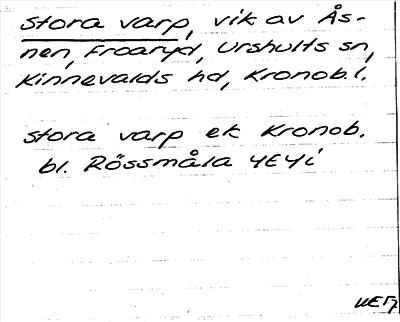 Stora varp, vik av Ås-
nen, Froaryd, Urshults sn,
Kinnevalds hd, Kronob.l.
Stora varp ek Kronob.
bl. Rössmåla 4E4i